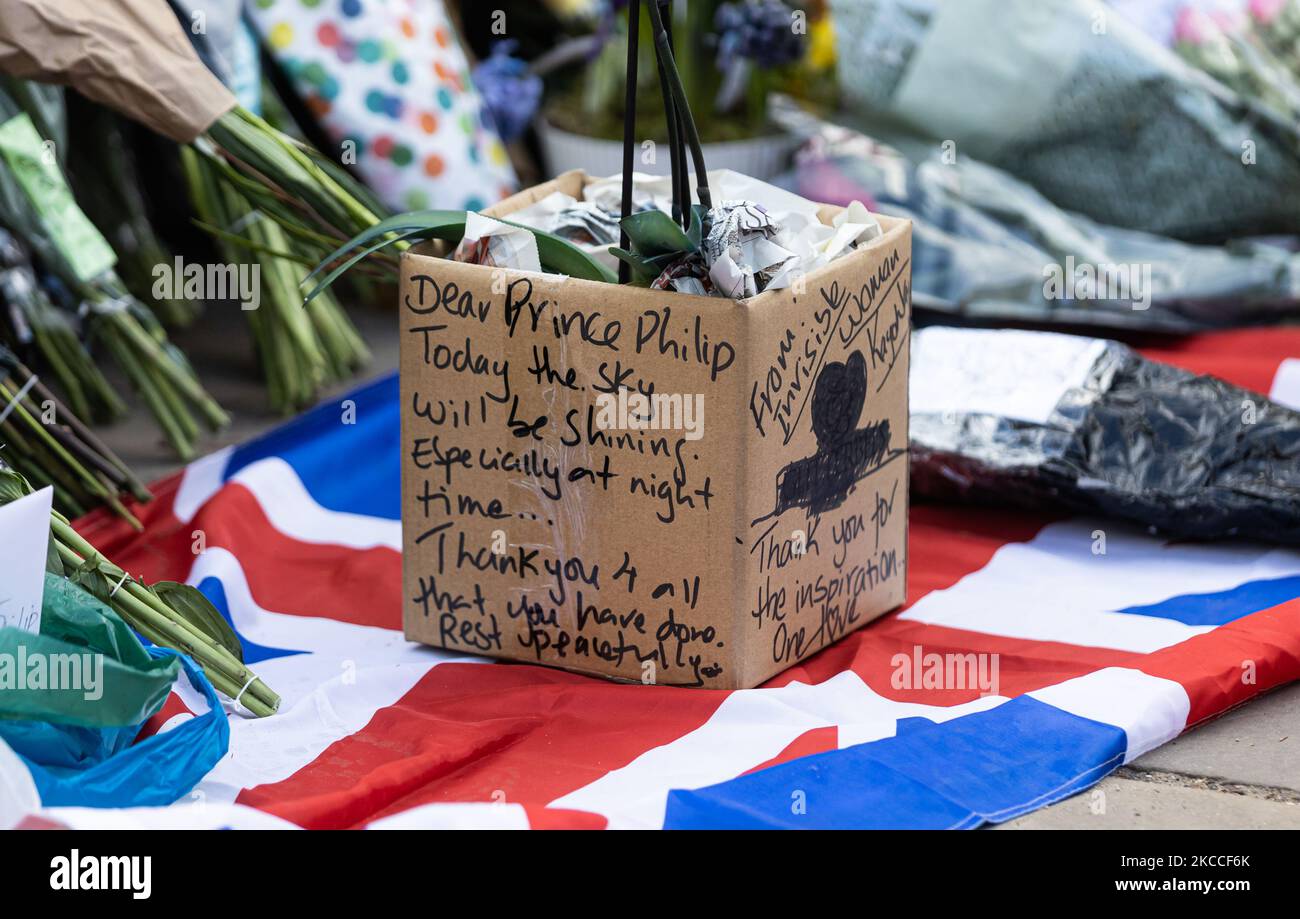 Dear Prince Philip
Today the sky
will be shining.
Especially at night
time...
Thank you 4 all
that you have done.
Rest peacefully
From
Invisible
Woman
Thank you for
the inspiration..
One love
alamy
alamy
Image ID: 2KCCF6K
www.alamy.com